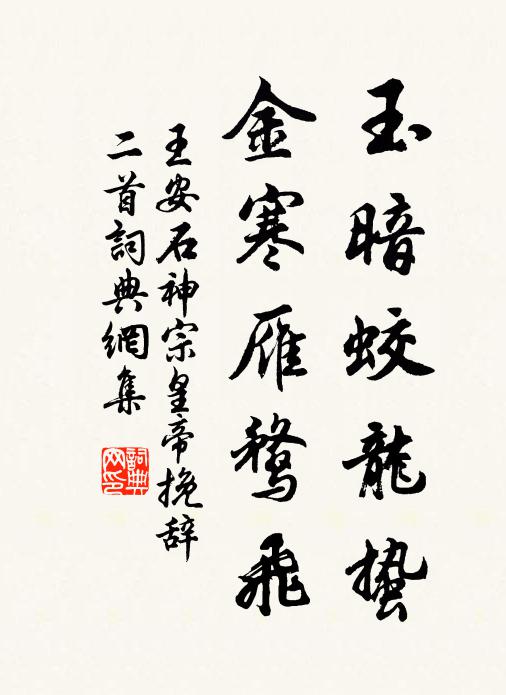 玉暗蛟龍蟄
金寒雁鶩飛
王安石神宗皇帝挽辞
二首詞典網集
詞典网印